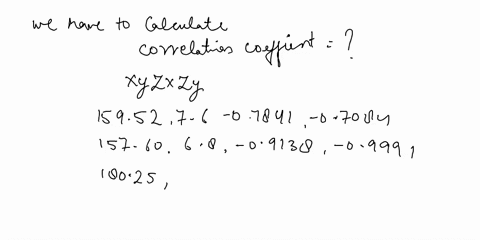 we have to Calculate
correlation coeffient = ?
xyZxZy
159.52, 7.6 -0.7841, -0.7084
157.60, 6.8, -0.9138, -0.9991
180.25,